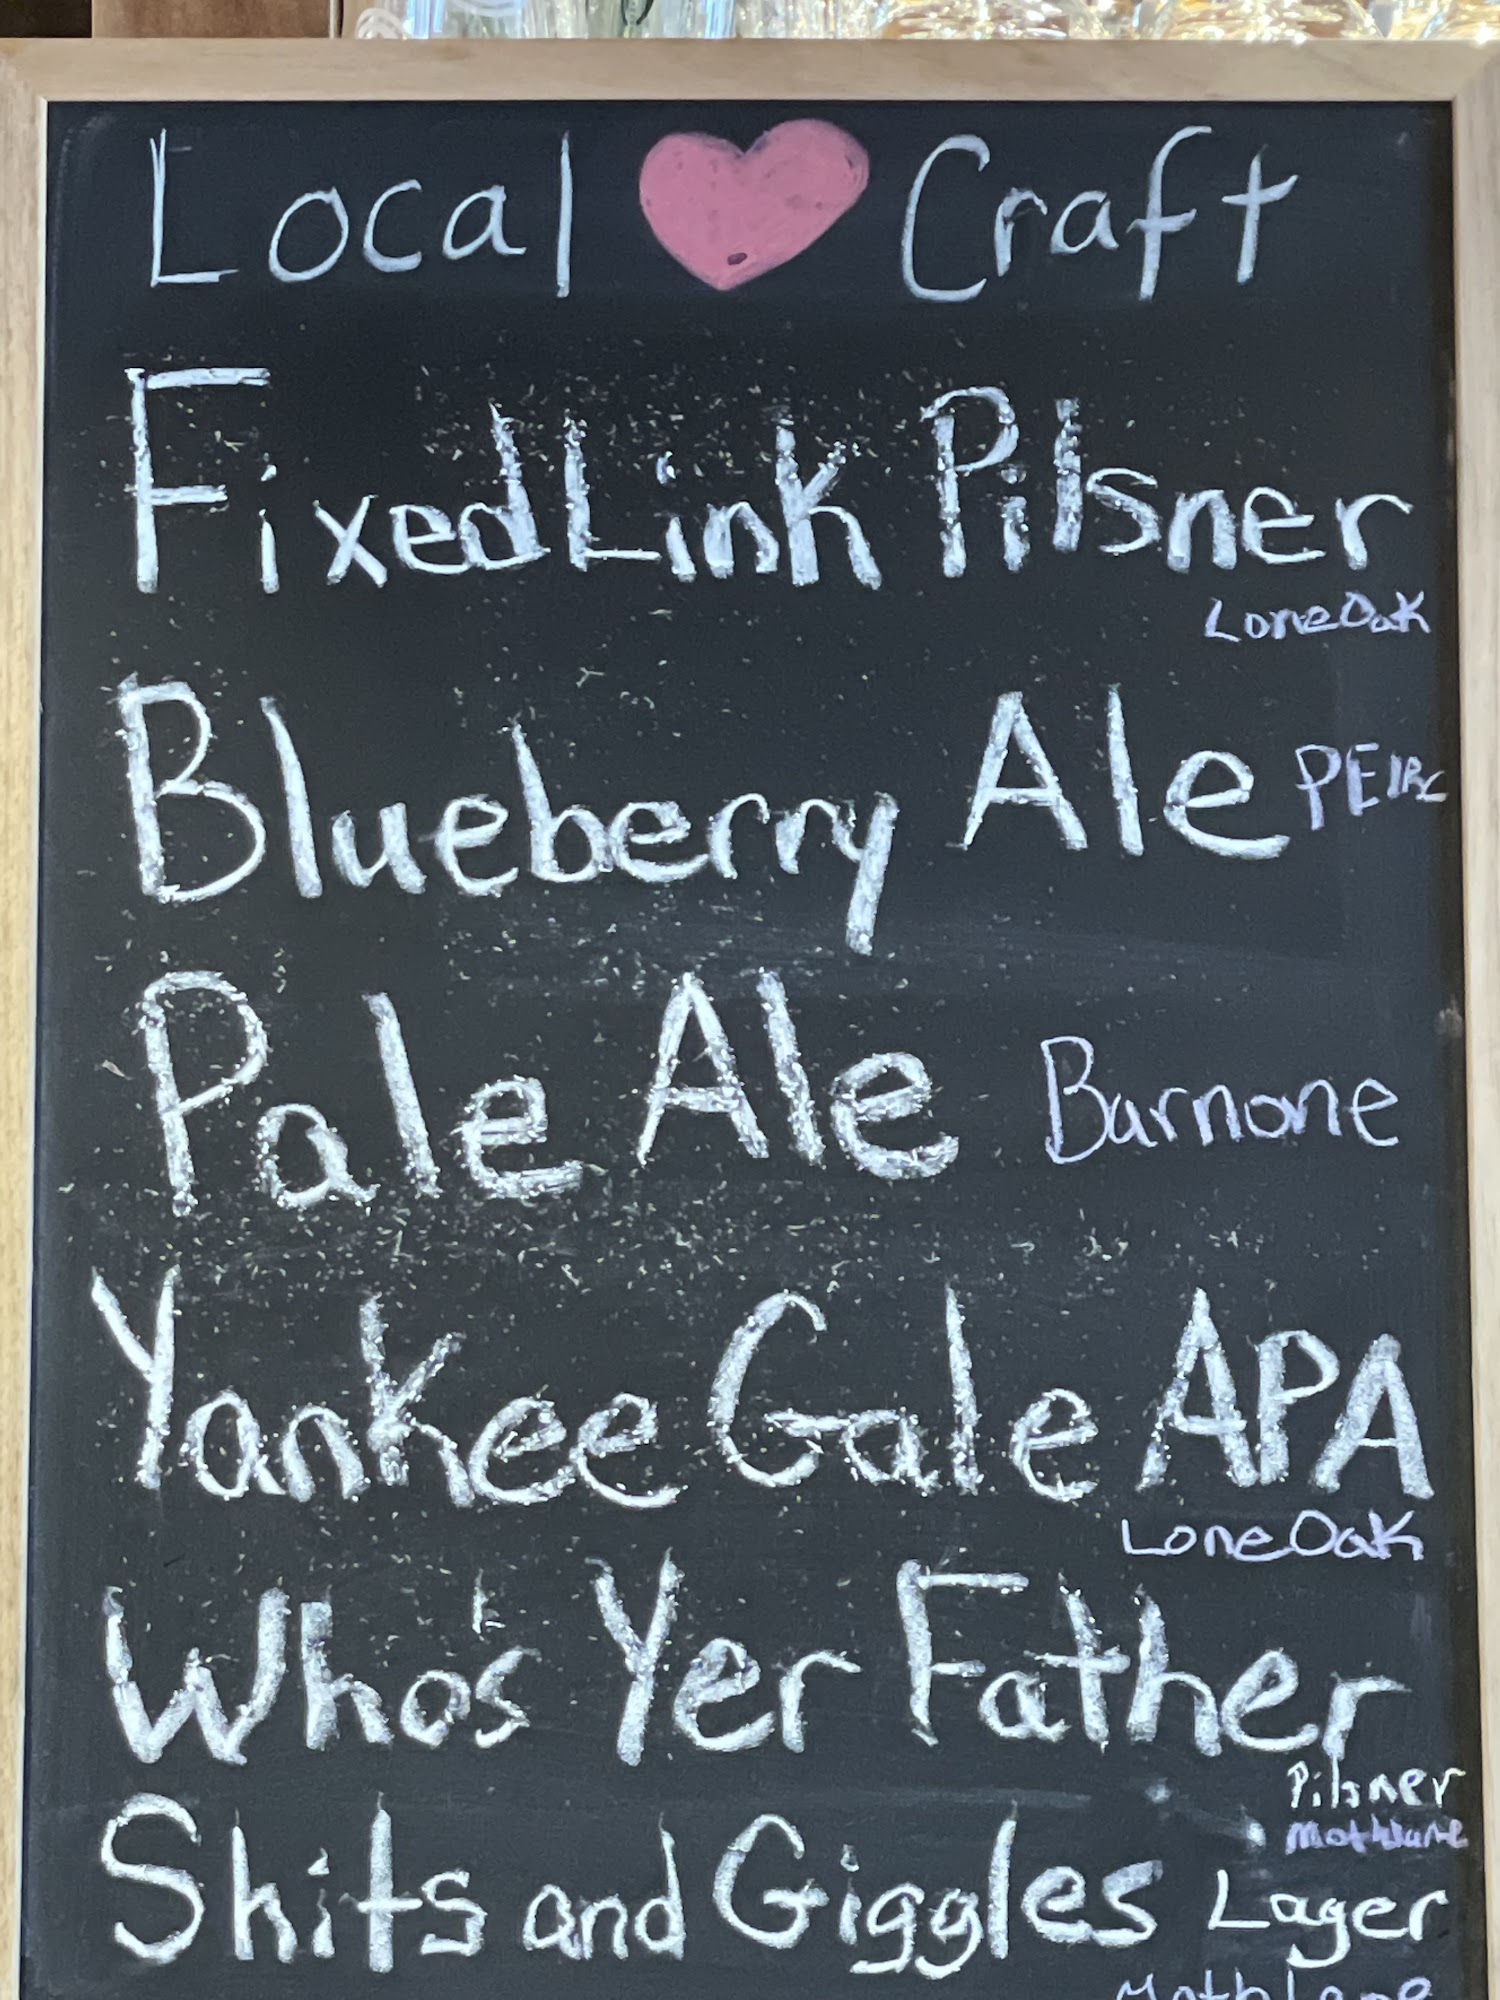 Local Craft
Fixed Link Pilsner
Lone Oak
Blueberry Ale PEIBC
Pale Ale Barnone
Yankee Gale APA
Lone Oak
Who's Yer Father
Pilsner
Moth Lane
Shits and Giggles Lager
Moth Lane